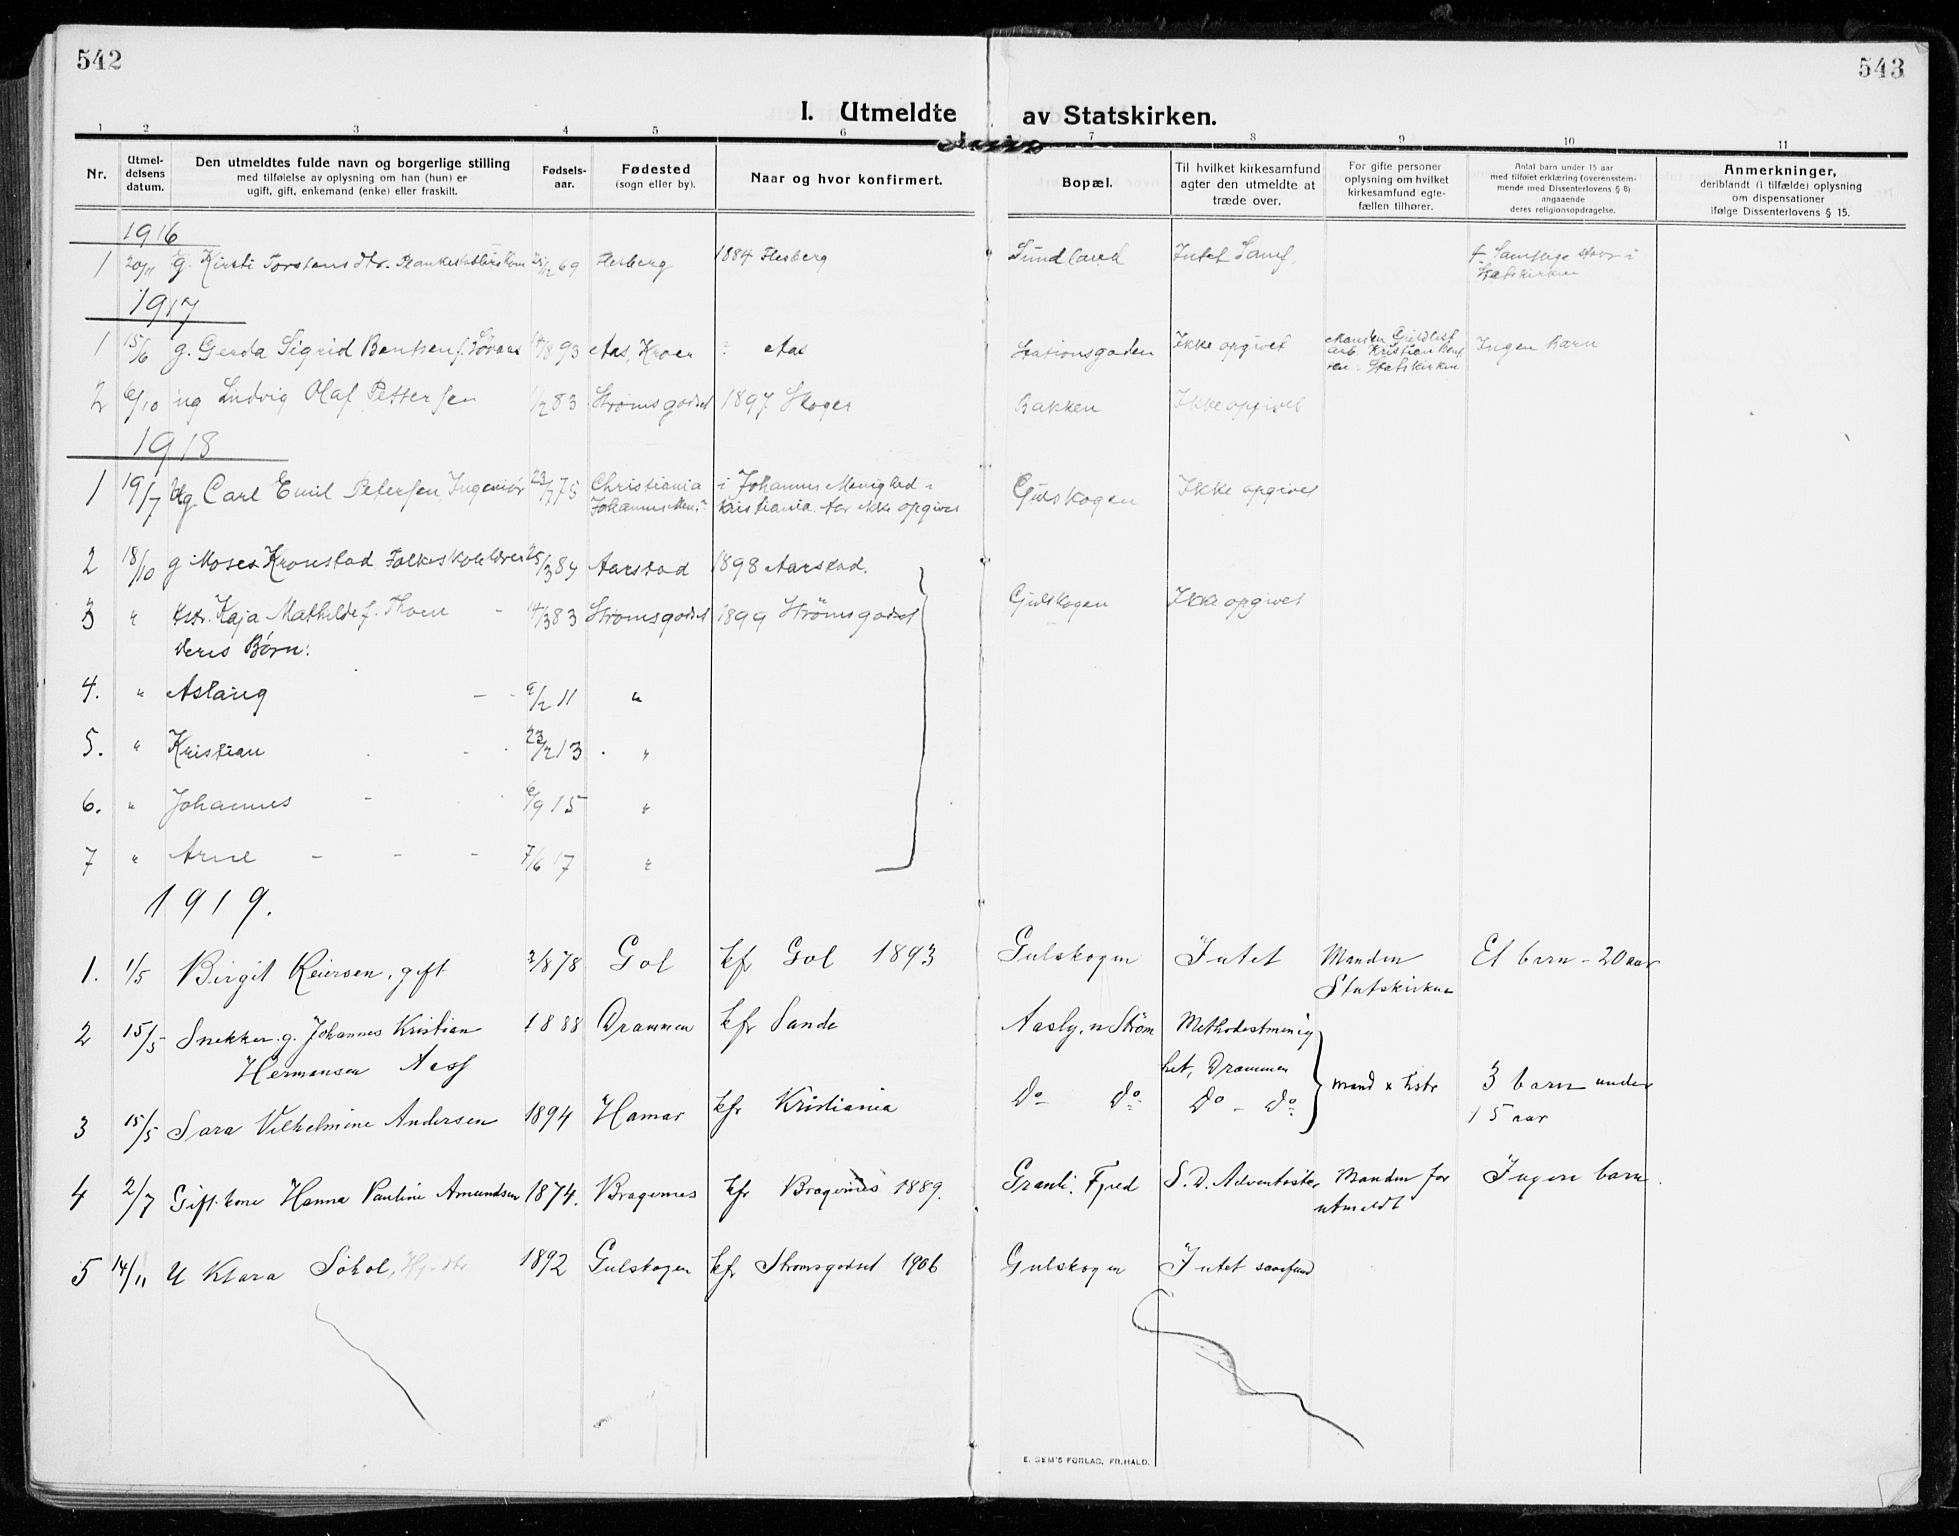 542
543
I. Utmeldte av Statskirken.
1 2 3 4 5 6 7 8 9 10 11
Nr.
Utmel-
delsens
datum.
Den utmeldtes fulde navn og borgerlige stilling
med tilføielse av oplysning om han (hun) er
ugift, gift, enkemand (enke) eller fraskilt.
Fødsels-
aar.
Fødested
(sogn eller by).
Naar og hvor konfirmert.
Bopæl.
Til hvilket kirkesamfund
agter den utmeldte at
træde over.
For gifte personer
oplysning om hvilket
kirkesamfund egte-
fællen tilhører.
Antal barn under 15 aar
med tilføiet erklæring (overensstem-
mende med Dissenterlovens § 8)
angaaende
deres religionsopdragelse.
Anmerkninger,
deriblandt (i tilfælde) oplysning
om dispensationer
ifølge Dissenterlovens § 15.
1916
1 20/11 g. Kirsti Torstensdtr. 69 Flesberg 1884 Flesberg Sundland Intet Samf. Samtlige i
Statskirken
1917
1 15/6 g. Gerda Sigrid Bentsen f. 14/8 93 Aas, Kroer ? Aas Stationsgaden Ikke opgivet Manden
arb. Kristian Bent
sen - Statskirken Ingen barn
2 6/10 ug Ludvig Olaf Pettersen 83 Strømsgodset 1897 Skoger Bakken Ikke opgivet
1918
1 19/7 Carl Emil Petersen Ingeniør 23/7 75 Christiania
Johannes Men. i Johannes Menighed i
Kristiania. Aar ikke opgivet Gulskogen Ikke opgivet
2 18/10 g Moses Kronstad Folkeskolelærer 25/3 84 Aarstad 1898 Aarstad.
3 " Kstr. Kaja Mathilde f. Thoen - 14/3 83 Strømsgodset 1899 Strømsgodset Gulskogen Ikke opgivet
deres Børn:
4. " Aslaug - - 9/2 11 "
5. " Kristian 23/2 13 "
6. " Johannes - 6/9 15 "
7 " Arne - - - 7/6 17 "
1919.
1. 1/5 Birgit Reiersen, gift 3/8 78 Gol kfr Gol 1893 Gulskogen Intet Manden
Statskirken Et barn - 20 aar
2 15/5 Snekker g. Johannes Kristian
Hermansen Aass 1888 Drammen kfr Sande Aasly, n Strøm Methodistmenig
het, Drammen mand x hstr 3 barn under
15 aar
3 15/5 Sara Vilhelmine Andersen 1894 Hamar kfr Kristiania Do Do Do - Do
4 2/7 Gift kone Hanna Pauline Amundsen 1874. Bragernes kfr Bragernes 1889. Granli. Fjeld S. D. Adventister Manden før
utmeldt Ingen barn.
5 14/11 U Klara Sokol, 1892 Gulskogen kfr Strømsgodset 1906 Gulskogen Intet samfund
E. SEM'S FORLAG, FR.HALD.